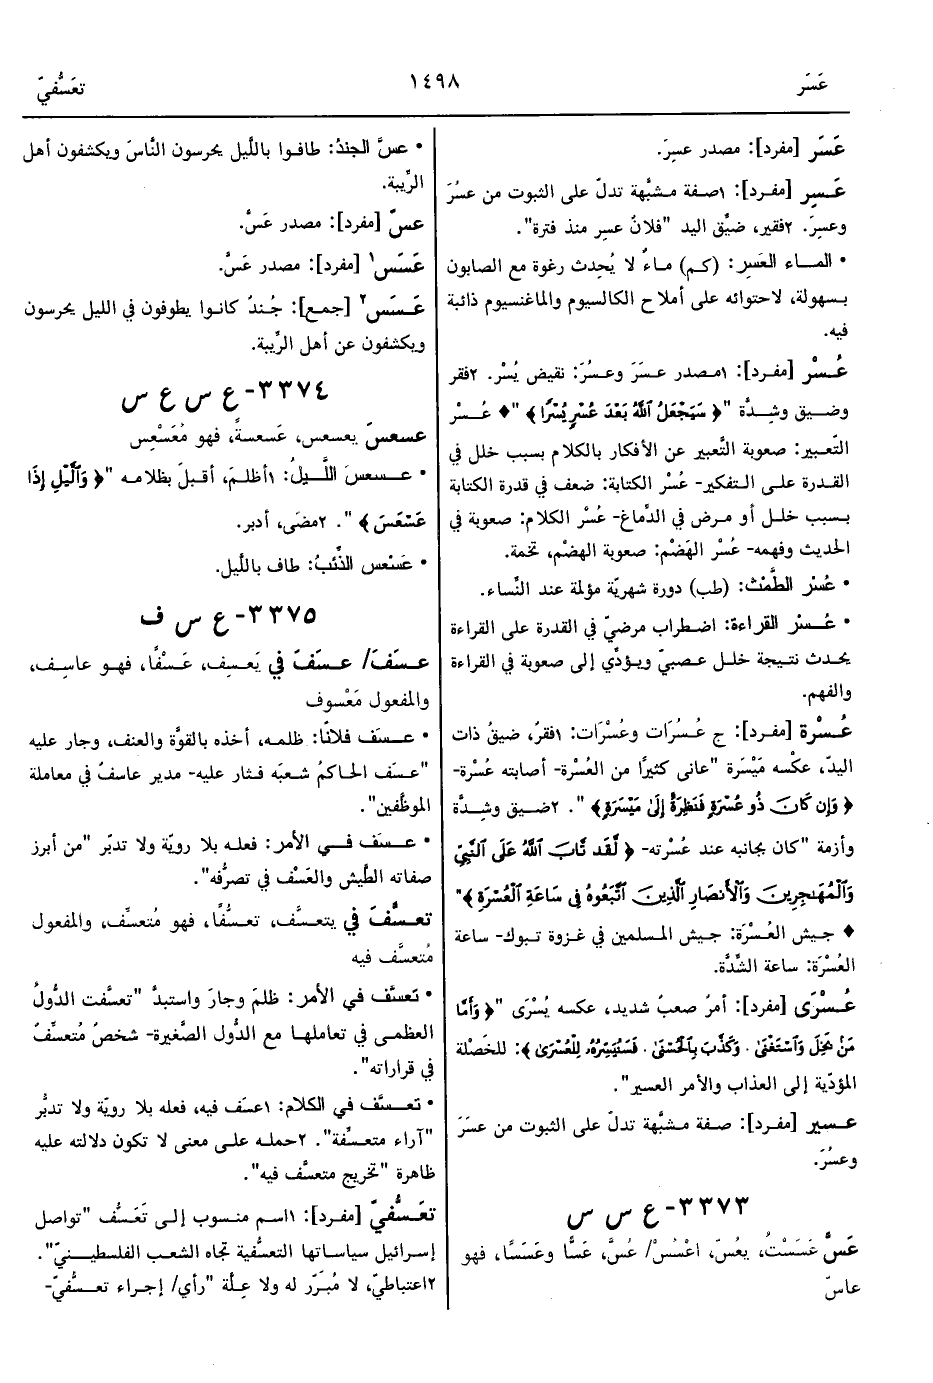 عَسَر
١٤٩٨
تعَسُّفيّ
عَسَر [مفرد]: مصدر عسِرَ.
عَسِر [مفرد]: ١صفة مشبَّهة تدلّ على الثبوت من عسُرَ
وعسِرَ. ٢فقير، ضيِّق اليد "فلانٌ عسِر منذ فترة".
• الماء العَسِر: (كم) ماءٌ لا يُحدِث رغوة مع الصابون
بسهولة، لاحتوائه على أملاح الكالسيوم والماغنسيوم ذائبة
فيه.
عُسْر [مفرد]: ١مصدر عسَرَ وعسُرَ: نقيض يُسْر. ٢فقر
وضيق وشِدَّة "﴿ سَيَجْعَلُ ٱللَّهُ بَعْدَ عُسْرٍ يُسْرًا ﴾" ♦ عُسْر
التَّعبير: صعوبة التَّعبير عن الأفكار بالكلام بسبب خلل في
القدرة على التفكير- عُسْر الكتابة: ضعف في قدرة الكتابة
بسبب خلل أو مرض في الدِّماغ- عُسْر الكلام: صعوبة في
الحديث وفهمه- عُسْر الهَضْم: صعوبة الهضْم، تخمة.
• عُسْر الطَّمْث: (طب) دورة شهريّة مؤلمة عند النِّساء.
• عُسْر القراءة: اضطراب مرضيّ في القدرة على القراءة
يحدث نتيجة خلل عصبيّ ويؤدِّي إلى صعوبة في القراءة
والفهم.
عُسْرة [مفرد]: ج عُسُرَات وعُسْرَات: ١فقرٌ، ضيقُ ذات
اليدّ، عكسه مَيْسَرة "عانى كثيرًا من العُسْرة- أصابته عُسْرة-
﴿ وَإِن كَانَ ذُو عُسْرَةٍ فَنَظِرَةٌ إِلَىٰ مَيْسَرَةٍ ﴾ ". ٢ضيق وشدَّة
وأزمة "كان بجانبه عند عُسْرته- ﴿ لَّقَد تَّابَ ٱللَّهُ عَلَى ٱلنَّبِيِّ
وَٱلْمُهَـٰجِرِينَ وَٱلْأَنصَارِ ٱلَّذِينَ ٱتَّبَعُوهُ فِي سَاعَةِ ٱلْعُسْرَةِ ﴾"
♦ جيش العُسْرَة: جيش المسلمين في غزوة تبوك- ساعة
العُسْرَة: ساعة الشِّدَّة.
عُسْرَى [مفرد]: أمرٌ صعبٌ شديد، عكسه يُسْرَى "﴿ وَأَمَّا
مَنۢ بَخِلَ وَٱسْتَغْنَىٰ . وَكَذَّبَ بِٱلْحُسْنَىٰ . فَسَنُيَسِّرُهُۥ لِلْعُسْرَىٰ ﴾: للخَصْلة
المؤدّية إلى العذاب والأمر العسير".
عسير [مفرد]: صفة مشبَّهة تدلّ على الثبوت من عسَرَ
وعسُرَ.
٣٣٧٣- ع س س
عَسَّ عَسَسْتُ، يعُسّ، اعْسُسْ/ عُسَّ، عَسًّا وعَسَسًا، فهو
عاسّ
• عسَّ الجندُ: طافوا بالليل يحرسون النَّاسَ ويكشفون أهل
الرِّيبة.
عسّ [مفرد]: مصدر عَسَّ.
عَسَس١ [مفرد]: مصدر عَسَّ.
عَسَس٢ [جمع]: جُندٌ كانوا يطوفون في الليل يحرسون
ويكشفون عن أهل الرِّيبة.
٣٣٧٤- ع س ع س
عسعسَ يعسعس، عَسعسةً، فهو مُعَسْعِس
• عسعسَ اللَّيلُ: ١أظلمَ، أقبلَ بظلامه "﴿ وَٱلَّيْلِ إِذَا
عَسْعَسَ ﴾ ". ٢مضَى، أدبر.
• عَسْعس الذِّئبُ: طاف باللَّيل.
٣٣٧٥- ع س ف
عسَفَ/ عسَفَ في يَعسِف، عَسْفًا، فهو عاسِف،
والمفعول مَعْسوف
• عسَف فلانًا: ظلمه، أخذه بالقوَّة والعنف، وجار عليه
"عسَف الحاكمُ شعبَه فثار عليه- مدير عاسفٌ في معاملة
الموظَّفين".
• عسَف في الأمر: فعله بلا رويّة ولا تدبّر "من أبرز
صفاته الطَّيش والعَسْف في تصرُّفه".
تعسَّفَ في يتعسَّف، تعسُّفًا، فهو مُتعسِّف، والمفعول
مُتعسَّف فيه
• تَعسَّف في الأمر: ظلمَ وجارَ واستبدَّ "تعسَّفت الدُّولُ
العظمى في تعاملها مع الدُّول الصَّغيرة- شخصٌ مُتعسِّفٌ
في قراراته".
• تعسَّف في الكلام: ١عسَف فيه، فعله بلا رويّة ولا تدبُّر
"آراء متعسِّفة". ٢حمله على معنى لا تكون دلالته عليه
ظاهرة "تخريج متعسَّف فيه".
تعَسُّفيّ [مفرد]: ١اسم منسوب إلى تَعَسُّف "تواصل
إسرائيل سياساتها التعسُّفية تجاه الشعب الفلسطينيّ".
٢اعتباطيّ، لا مُبَرِّر له ولا عِلَّة "رأي/ إجراء تعسُّفيّ-